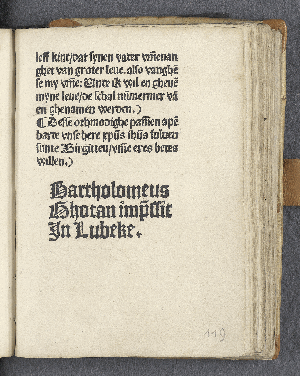 leff kint/dat synen vader vm̄evan
ghet van groter leue. also vanghē
se my vm̄e: Vnde ik wil en gheuē
myne leue/de schal nūmermer vā
en ghenamen werden.)
¶ Desse othmodighe passien apē
barde vnse here
sunte Birgitten/
willen.)
Bartholomeus
Ghotan imp̄ssit
In Lubeke.
119